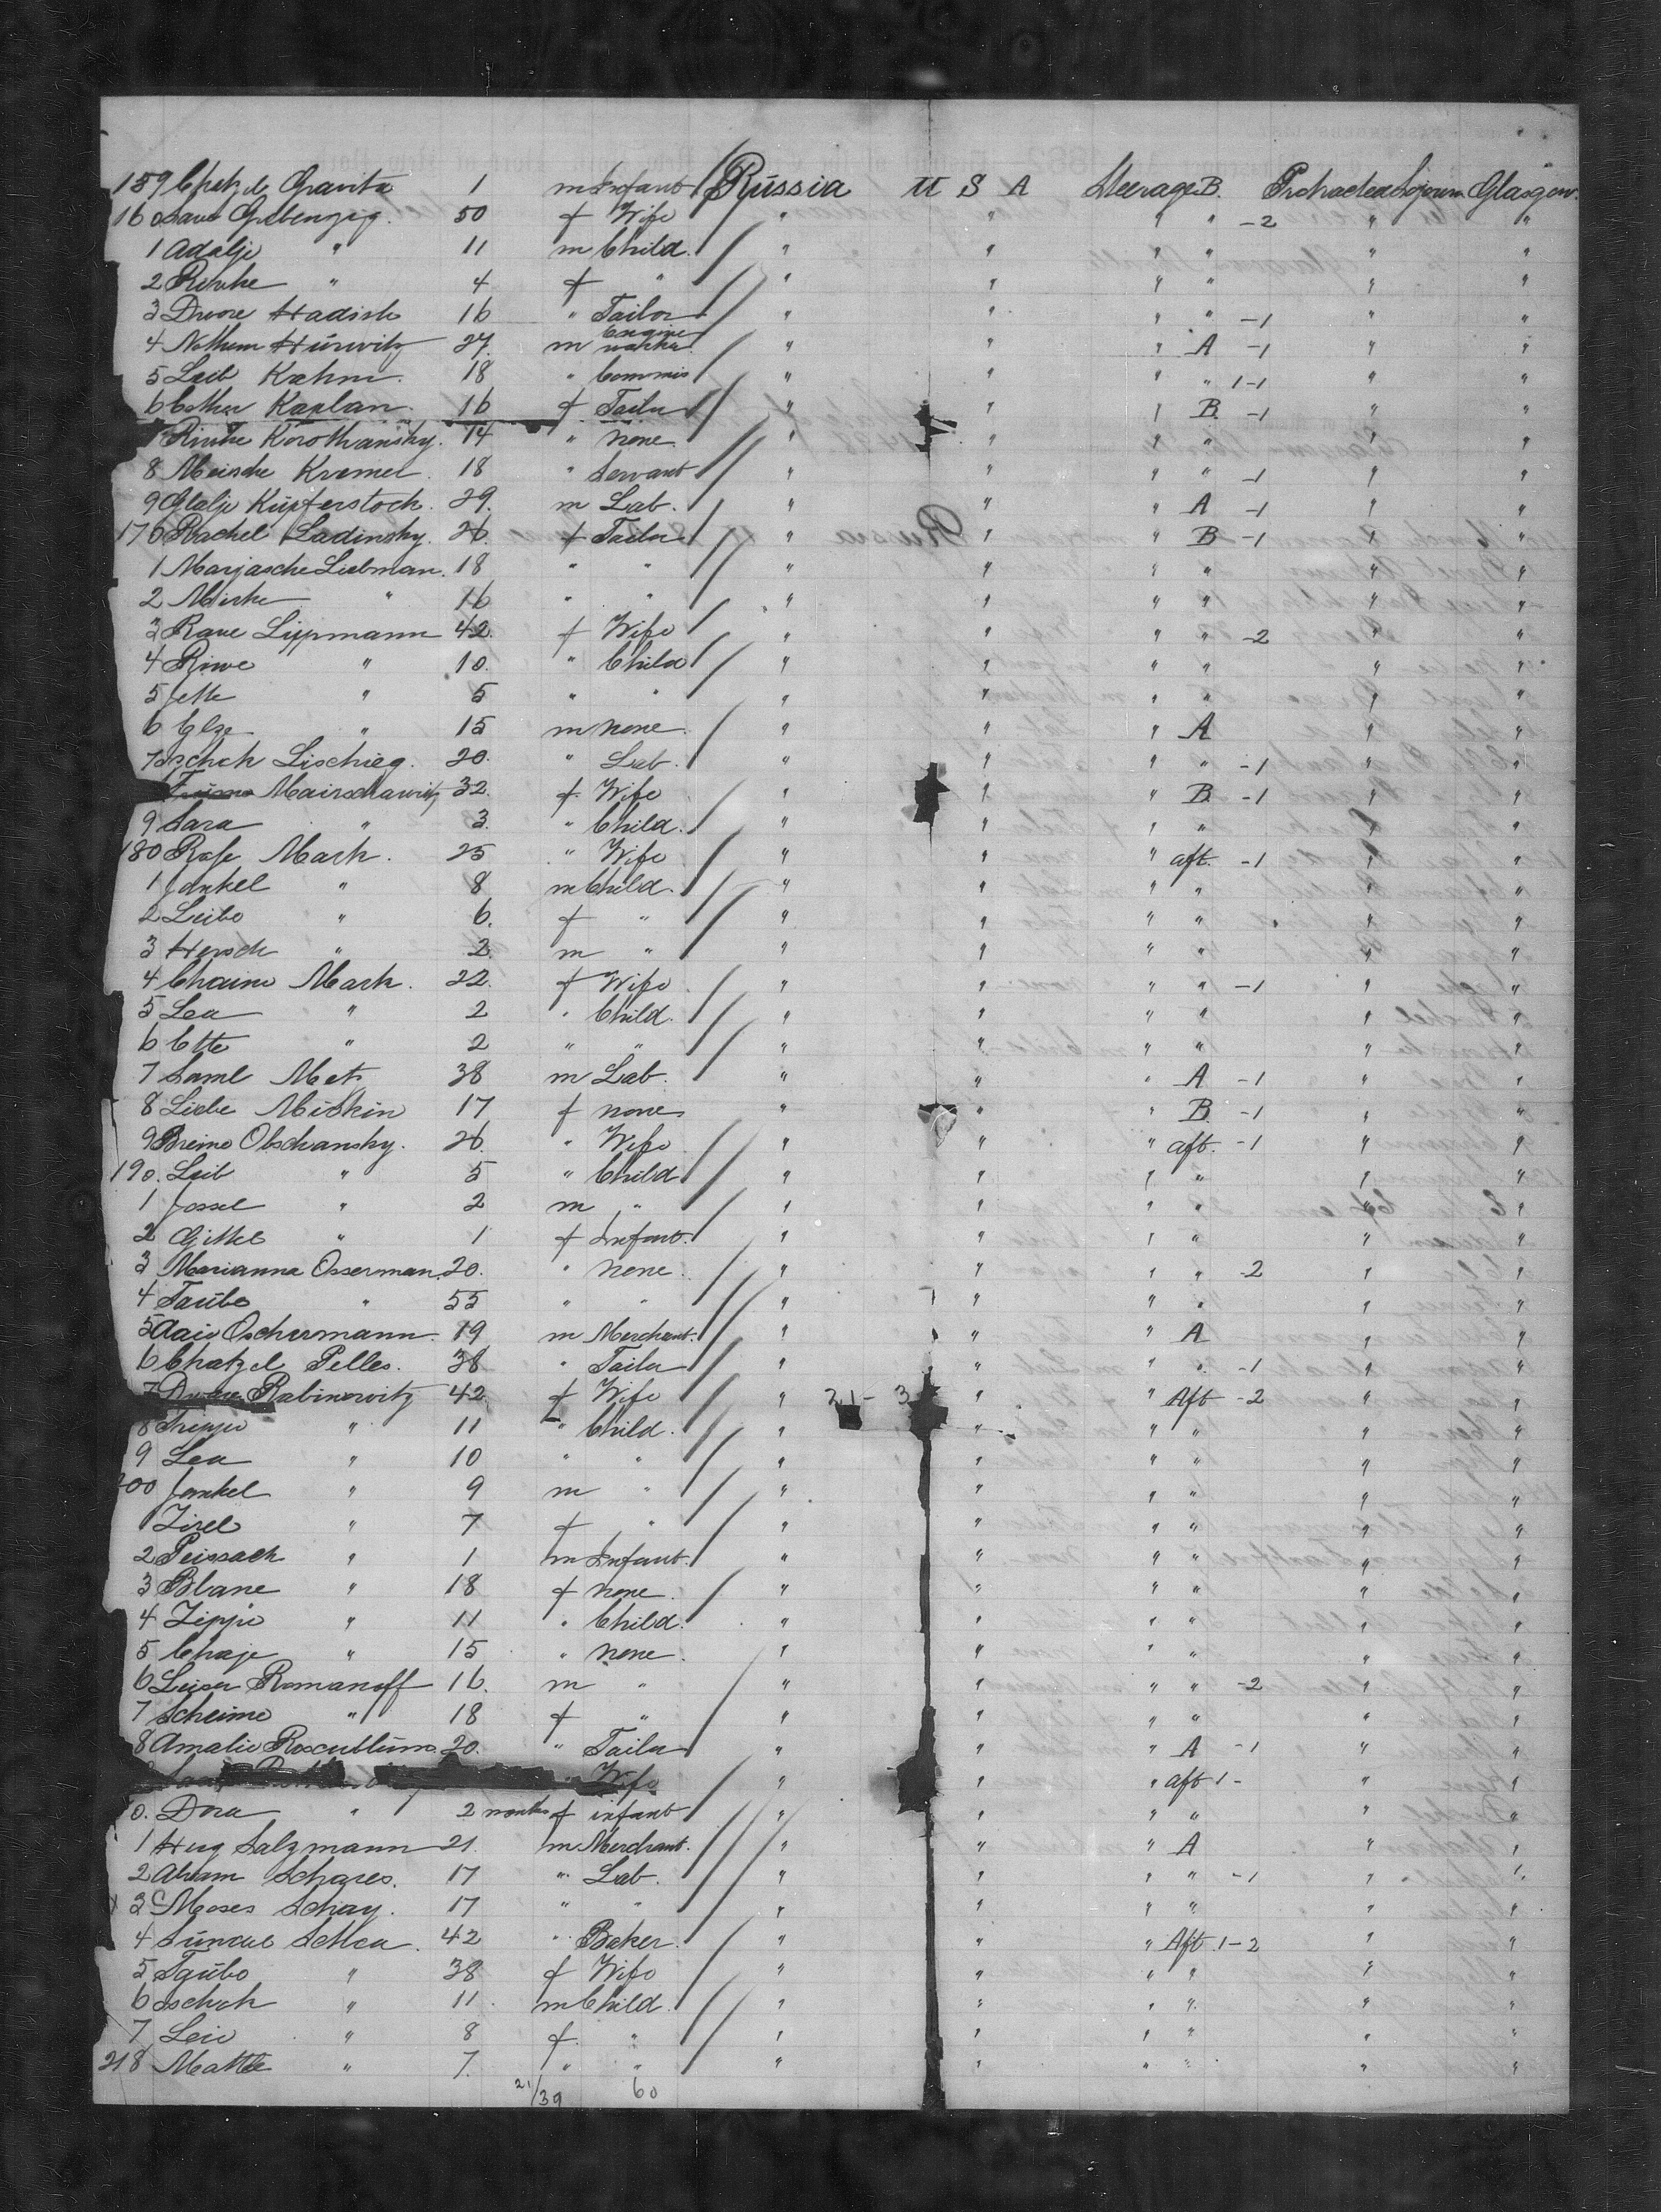 159 Chatzel Gravitz 1 m Infant Russia U S A Steerage B. Protracted Sojourn Glasgow.
160 Grebenzig. 50 f Wife " " " " -2 " "
1 Adalje " 11 m Child. " " " " " "
2 " 4 f " " " " " " "
3 Dwore Hadish 16 " Tailor " " " " -1 " "
4 Nothum Hürwitz 27. m " " " A -1 " "
5 Leib Krahm. 18 " Commis " " " " 1-1 " "
6 Esther Kaplan. 16 f Tailor " " " B. -1 " "
Korothansky. 14 " none " " " " " "
8 Meische Kremer. 18 " Servant " " " " -1 " "
9 Küpferstoch. 29. m Lab. " " " A -1 " "
170 Rachel Ladinsky. 26. f Tailor " " " B -1 " "
1 Marjasche Liebman. 18 " " " " " " " "
2 Mirke " 16 " " " " " " " "
3 Rave Lippmann 42. f Wife " " " " -2 " "
4 Riwe " 10. " Child " " " " " "
5 Jette " 5 " " " " " " " "
6 Elze " 15 m none " " " A " "
7 Lischieg. 20. " Lab. " " " " -1 " "
Mairschawitz 32. f. Wife " " " B -1 " "
9 Sara " 3. " Child. " " " " " "
180 Rose Mark. 25 " Wife " " " aft. -1 " "
1 Jankel " 8 m Child. " " " " " "
2 Leibe " 6. f " " " " " " "
3 Hersch " 2. m " " " " " " "
4 Chaine Mark. 22. f Wife " " " " -1 " "
5 Lea " 2 " Child. " " " " " "
6 Ette " 2 " " " " " " " "
7 Saml Metz 38 m Lab. " " " A -1 " "
8 Liebe Miskin 17 f none " " " B. -1 " "
9 Breine Obschansky. 26. " Wife " " " aft. -1 " "
190. Leib " 5 " Child " " " " " "
1 Jossel " 2 m " " " " " " "
2 Gittel " 1 f Infant. " " " " " "
3 Marianna Osserman. 20. " none. " " " " -2 " "
4 Taübe " 55 " " " " " " " "
5 Oschermann. 19 m Merchant. " " " A " "
6 Chatzel Pelles. 38 " Tailor " " " " -1 " "
7 Rabinowitz 42. f Wife " 21-3 " " Aft -2 " "
8 " 11 " Child. " " " " " "
9 Lea " 10 " " " " " " " "
200 Jankel " 9 m " " " " " " "
1 Zirel " 7 f " " " " " " "
2 Peissach " 1 m Infant. " " " " " "
3 Blane " 18 f none. " " " " " "
4 Zippe " 11 " Child. " " " " " "
5 Chaje " 15 " none. " " " " " "
6 Leiser Romanoff 16. m " " " " " -2 " "
7 Scheime " 18 f " " " " " " "
8 Amalie Rosenblüm. 20. " Tailor " " " A -1 " "
" Wife " " " aft 1- " "
0. Dora " 2 months f infant " " " " " "
1 Salzmann 21. m Merchant. " " " A " "
2 Abram Schares. 17 " Lab. " " " " -1 " "
3 Moses Schay. 17 " " " " " " " "
4 42 " Baker. " " " Aft. 1-2 " "
5 Taübe " 38 f Wife " " " " " "
6 " 11. m Child. " " " " " "
7 Leie " 8 f. " " " " " " "
218 Matte " 7. " " " " " " " "
21/39 60